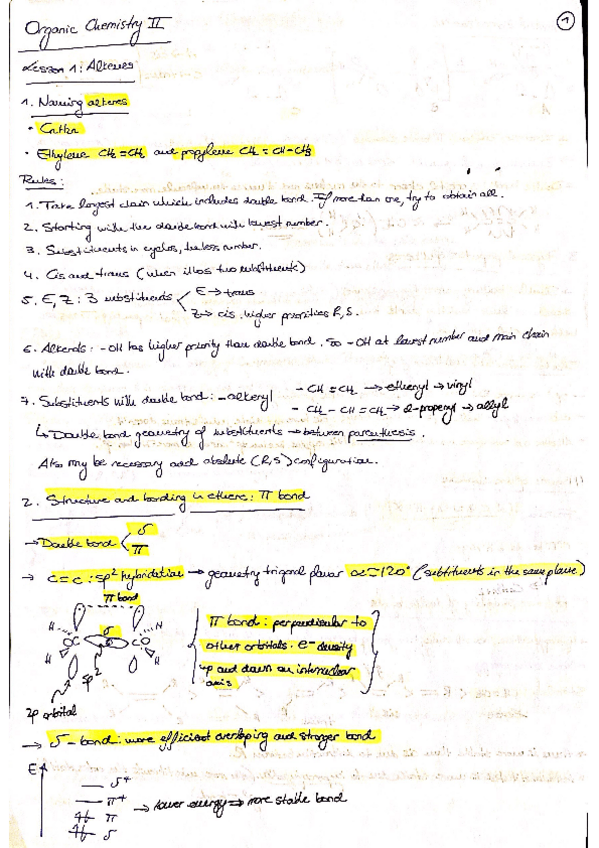 1
Organic Chemistry II
Lesson 1: Alkenes
1. Naming alkenes
• CnH2n
• Ethylene CH2=CH2 and propylene CH2=CH-CH3
Rules:
1. Take longest chain which includes double bond. If more than one, try to obtain all.
2. Starting with the double bond with lowest number.
3. Substituents in cyclos, the less number.
4. Cis and trans (when illos two substituents)
5. E, Z: 3 substituents E → trans
Z → cis. higher priorities R, S.
6. Alkenols: -OH has higher priority than double bond. So -OH at lowest number and main chain
with double bond.
7. Substituents with double bond: -alkenyl - CH=CH2 → ethenyl → vinyl
- CH2-CH=CH2 → 2-propenyl → allyl
↳ Double bond geometry of substituents → between parenthesis.
Also may be necessary add absolute (R,S) configuration.
2. Structure and bonding in ethene: π bond
→ Double bond σ
π
→ C=C: sp2 hybridization → geometry trigonal planar α=120° (substituents in the same plane)
π bond
H σ H
C C
H H
sp2
2p orbital
π bond: perpendicular to
other orbitals. e- density
up and down an internuclear
axis
→ σ-bond: more efficient overlaping and stronger bond
E
σ*
π*
π → lower energy ⇒ more stable bond
σ